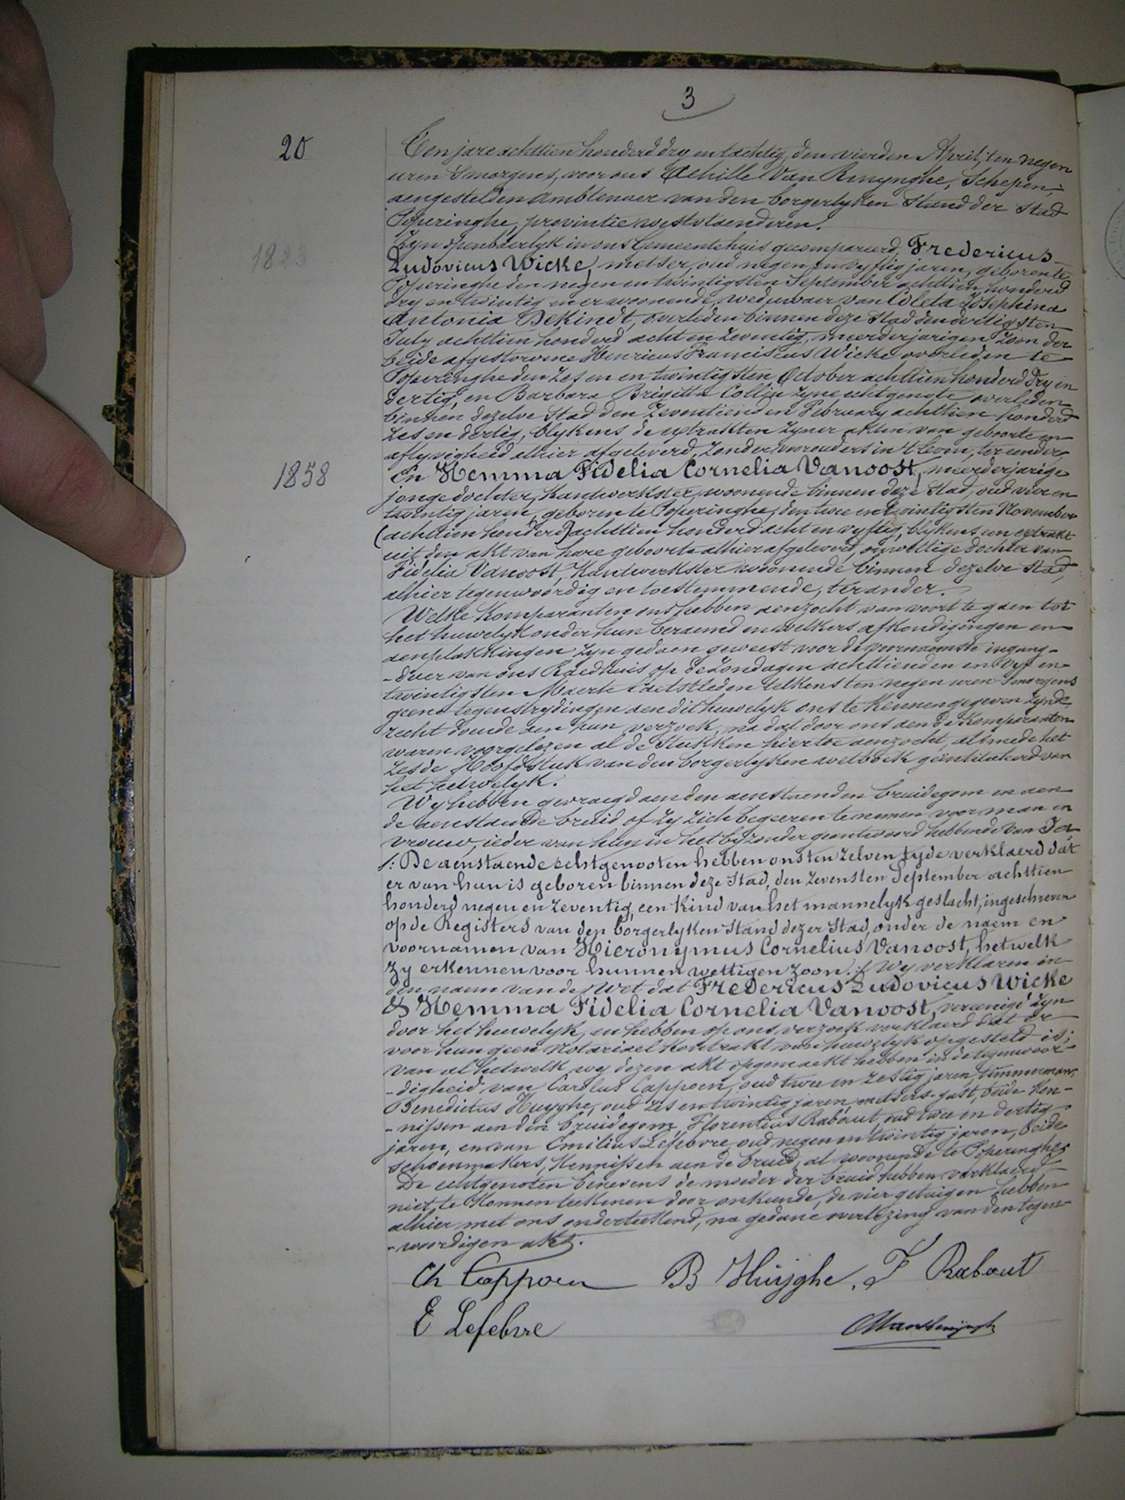 3
20
Ten jare achttien honderd dry en tachtig, den vierden April, ten negen
uren 's morgens, voor ons Achille Van Renynghe, Schepen,
aengestelden Amblenaer van den borgerlyken Stand der Stad
Poperinghe, provintie westvlaenderen.
Zyn openbaerlyk in ons Gemeentehuis gecompareerd, Fredericus
1823
Ludovicus Wicke, metser, oud negen en vyftig jaren, geboren te
Poperinghe den negen en twintigsten September achttien honderd
dry en twintig en er woonende, weduwaer van Coleta Josephina
Antonia Dekindt, overleden binnen deze Stad den dertigsten
July achttien honderd acht en zeventig, meerderjarigen zoon der
beide afgestorvene Henricus Franciscus Wicke overleden te
Poperinghe den zes en en twintigsten October achttien honderd dry en
dertig, en Barbara Brigitta Collin zyne echtgenote overleden
binnen dezelve Stad den zeventienden February achttien honderd
zes en dertig, blykens de extrakten zyner akten van geboorte en
aflyvigheid alhier afgeleverd, zonder voorouders in 't leven, ter eender
1858
En Hemma Fidelia Cornelia Vanoost, meerderjarige
jonge dochter, handwerkster, woonende binnen deze Stad, oud vier en
twintig jaren, geboren te Poperinghe, den twee en twintigsten November
(achttien honderd) achttien honderd acht en vyftig, blykens een extrakt
uit den akt van hare geboorte alhier afgeleverd, onwettige dochter van
Fidelia Vanoost, Handwerkster woonende binnen dezelve Stad,
alhier tegenwoordig en toestemmende, ter ander.
Welke komparanten ons hebben aenzocht van voort te gaen tot
het huwelyk onder hun beraemd en welkers afkondigingen en
aenplakkingen zyn gedaen geweest voor de voornaemste ingang-
-deur van ons Raedhuis, op de zondagen achttienden en vyf en
twintigsten Maerte laetstleden telkens ten negen uren 's morgens
geene tegenstrydingen aen dit huwelyk ons te kennen gegeven zynde,
recht doende aen hun verzoek, na dat door ons aen de komparanten
waren voorgelezen al de stukken hiertoe aenzocht, alsmede het
zesde Hoofdstuk van den borgerlyken wetboek geïntituleerd van
het huwelyk.
Wy hebben gevraegd aen den aenstaenden bruidegom en aen
de aenstaende bruid of zy zich begeeren te nemen voor man en
vrouw, ieder van hun in het byzonder geantwoord hebbende van Ja
/: De aenstaende echtgenooten hebben ons ten zelven tyde verklaerd dat
er van hun is geboren binnen deze Stad, den zevensten September achttien
honderd negen en zeventig, een kind van het mannelyk geslacht, ingeschreven
op de Registers van den borgerlyken Stand dezer Stad, onder de naem en
voornamen van Hieronymus Cornelius Vanoost, hetwelk
zy erkennen voor hunnen wettigen zoon./ Wy verklaren in
den naem van de Wet dat Fredericus Ludovicus Wicke
& Hemma Fidelia Cornelia Vanoost, vereenigd zyn
door het huwelyk, en hebben op ons verzoek verklaerd dat er
voor hun geen Notarieel kontrakt van huwelyk opgesteld is;
van al hetwelk wy dezen akt opgemaekt hebben in de tegenwoor-
-digheid van Carolus Cappoen, oud twee en zestig jaren, timmerman,
Benedictus Huyghe, oud zes en twintig jaren, metsers-gast, beide ken-
-nissen aen den bruidegom, Florentius Rabaut, oud twee en dertig
jaren, en van Emilius Lefebvre, oud negen en twintig jaren, beide
schoenmakers, kennissen aen de bruid, al woonende te Poperinghe,
De echtgenoten benevens de moeder der bruid hebben verklaerd
niet te konnen teekenen door onkunde, de vier getuigen hebben
alhier met ons onderteekend, na gedane overlezing van den tegen-
-woordigen akt.
Ch Cappoen B Huyghe. F Rabaut
E Lefebvre